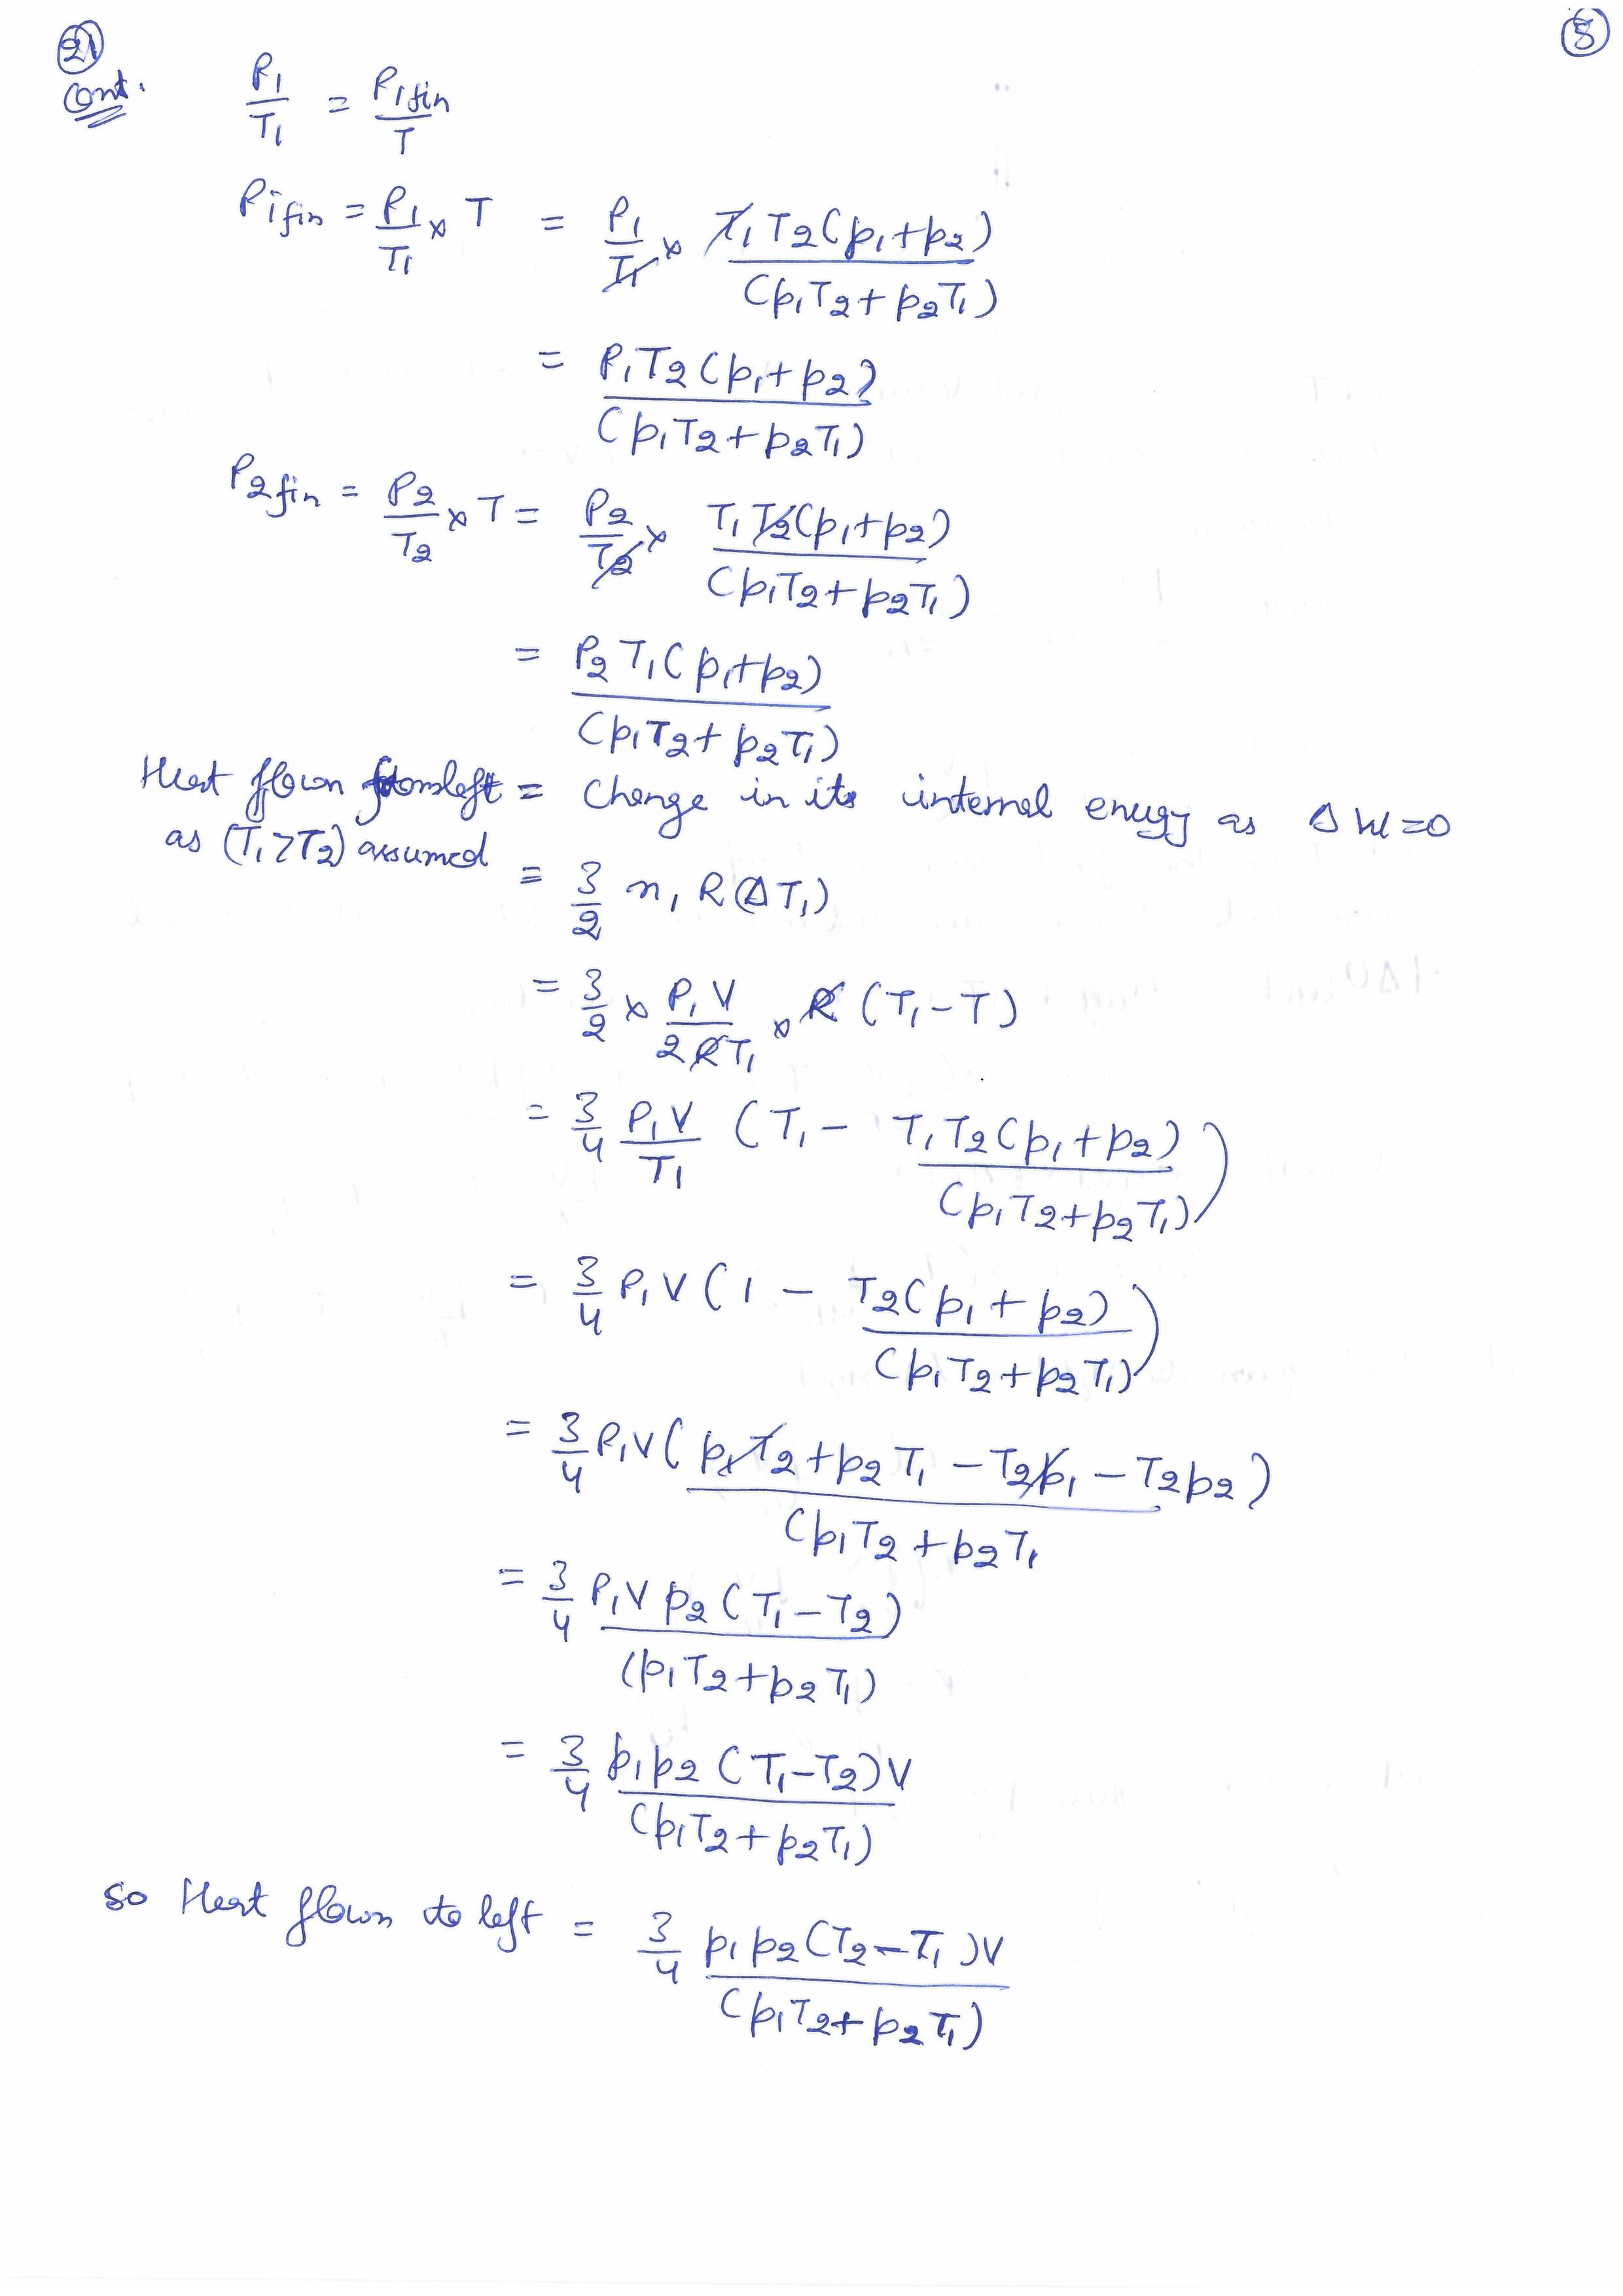 21 8
Cont. P1/T1 = P1fin/T
P1fin = P1/T1 × T = P1/T1 × T1T2(p1+p2)/(p1T2+p2T1)
= P1T2(p1+p2)/(p1T2+p2T1)
P2fin = P2/T2 × T = P2/T2 × T1T2(p1+p2)/(p1T2+p2T1)
= P2T1(p1+p2)/(p1T2+p2T1)
Heat flown from left = Change in its internal energy as ΔW=0
as (T1>T2) assumed
= 3/2 n1 R(ΔT1)
= 3/2 × P1V/2RT1 × R (T1-T)
= 3/4 P1V/T1 (T1 - T1T2(p1+p2)/(p1T2+p2T1))
= 3/4 P1V(1 - T2(p1+p2)/(p1T2+p2T1))
= 3/4 P1V(p1T2+p2T1-T2p1-T2p2)/(p1T2+p2T1
= 3/4 P1Vp2(T1-T2)/(p1T2+p2T1)
= 3/4 p1p2(T1-T2)V/(p1T2+p2T1)
so Heat flown to left = 3/4 p1p2(T2-T1)V/(p1T2+p2T1)